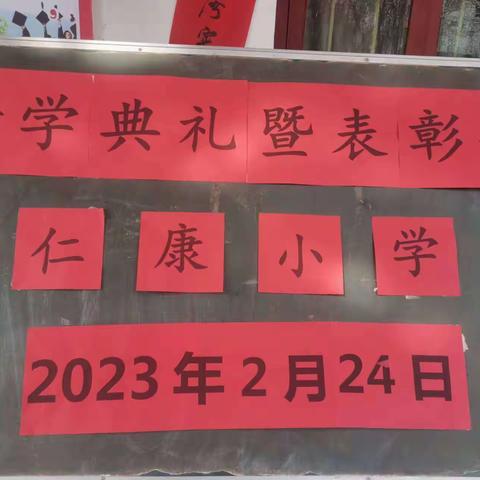 学典礼暨表彰
仁康小学
2023年2月24日